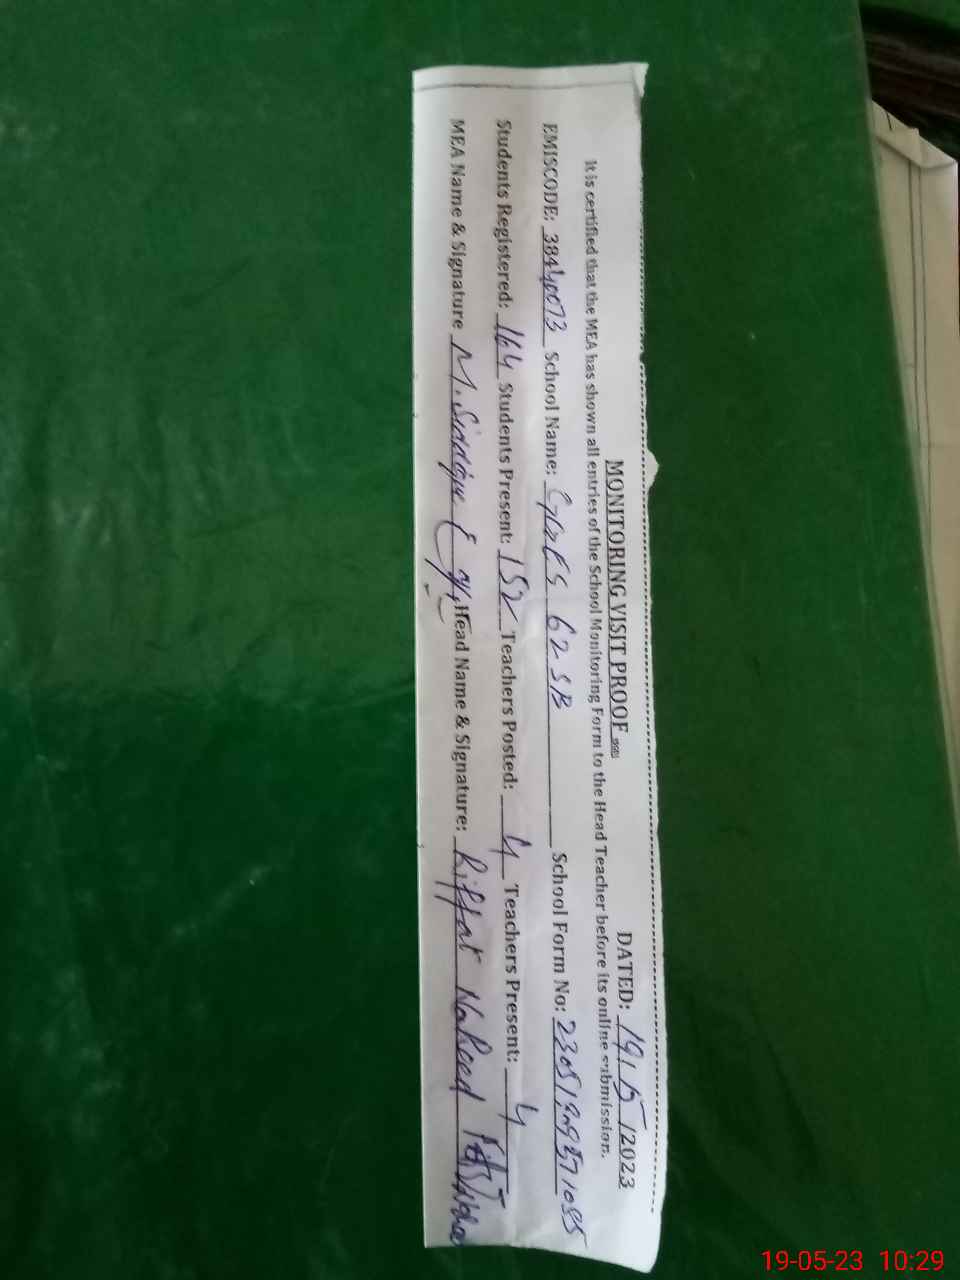 MONITORING VISIT PROOF DATED: 19/5/2023
It is certified that the MEA has shown all entries of the School Monitoring Form to the Head Teacher before its online submission.
EMISCODE: 38440073 School Name: 62 SB School Form No:
Students Registered: 164 Students Present: 152 Teachers Posted: 4 Teachers Present: 4
MEA Name & Signature M. Siddique Head Name & Signature: Riffat Naheed
19-05-23 10:29